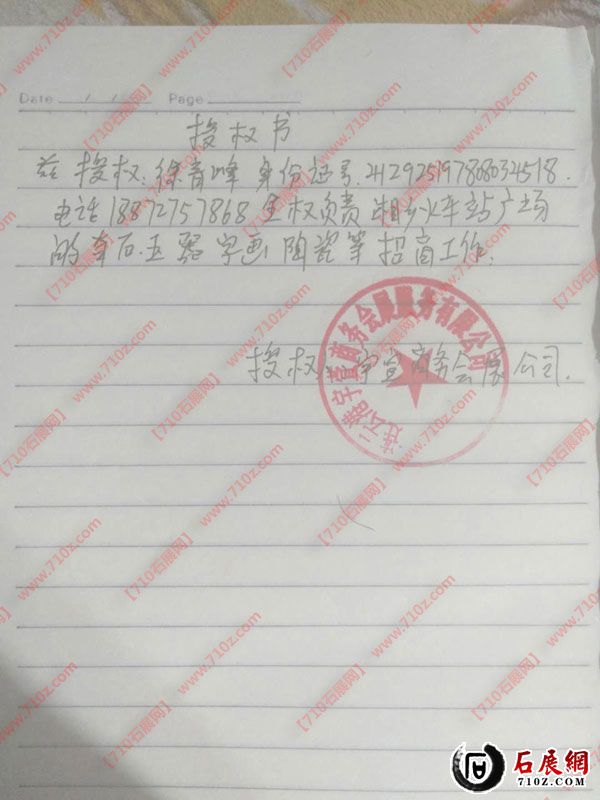 Date / / Page
授权书
兹授权：徐青峰 身份证号.412925197808034518.
电话18872757868全权负责湘乡火车站广场
的奇石.玉器字画陶瓷等招商工作.
授权：宇宣商务会展公司.
连云港宇萱商务会展服务有限公司
【710石展网】 www.710z.com
石展網
710Z.COM